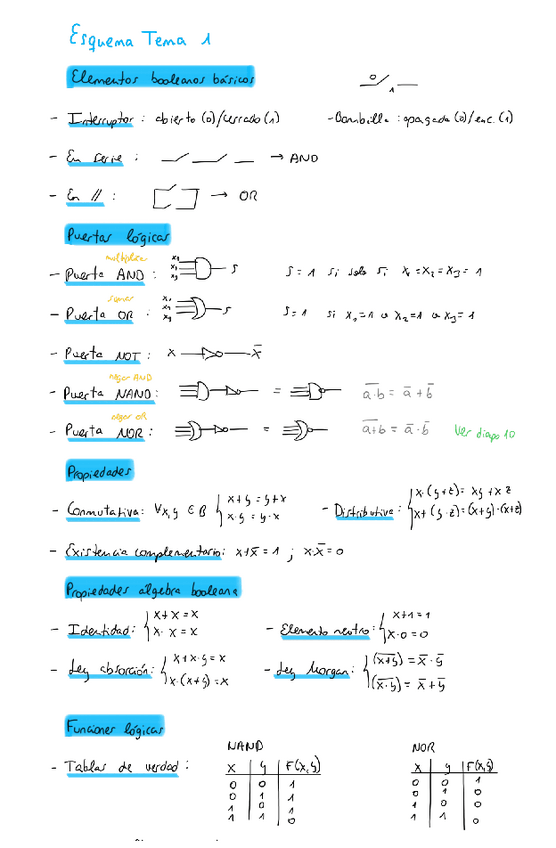 Esquema Tema 1
Elementos booleanos básicos
0
1
- Interruptor : abierto (0)/cerrado (1)
- Bombilla : apagada (0)/enc. (1)
- En serie : → AND
- En // : → OR
Puertas lógicas
multiplica
- Puerta AND : x₁ x₂ x₃ S S = 1 si solo si x₁ = x₂ = x₃ = 1
sumar
- Puerta OR : x₁ x₂ x₃ S S = 1 si x₁=1 o x₂=1 o x₃=1
- Puerta NOT : x x̅
negar AND
- Puerta NAND : = \overline{a·b} = a̅ + b̅
negar OR
- Puerta NOR : = \overline{a+b} = a̅·b̅ Ver diapo 10
Propiedades
- Conmutativa : ∀x,y ∈ B { x+y = y+x
x·y = y·x
- Distributiva : { x·(y+z) = xy + xz
x+(y·z) = (x+y)·(x+z)
- Existencia complementario : x+x̅ = 1 ; x·x̅ = 0
Propiedades álgebra booleana
- Identidad : { x+x = x
x·x = x
- Elemento neutro : { x+1 = 1
x·0 = 0
- Ley absorción : { x+x·y = x
x·(x+y) = x
- Ley Morgan : { \overline{(x+y)} = x̅·y̅
\overline{(x·y)} = x̅+y̅
Funciones lógicas
- Tablas de verdad :
NAND
x y F(x,y)
0 0 1
0 1 1
1 0 1
1 1 0
NOR
x y F(x,y)
0 0 1
0 1 0
1 0 0
1 1 0